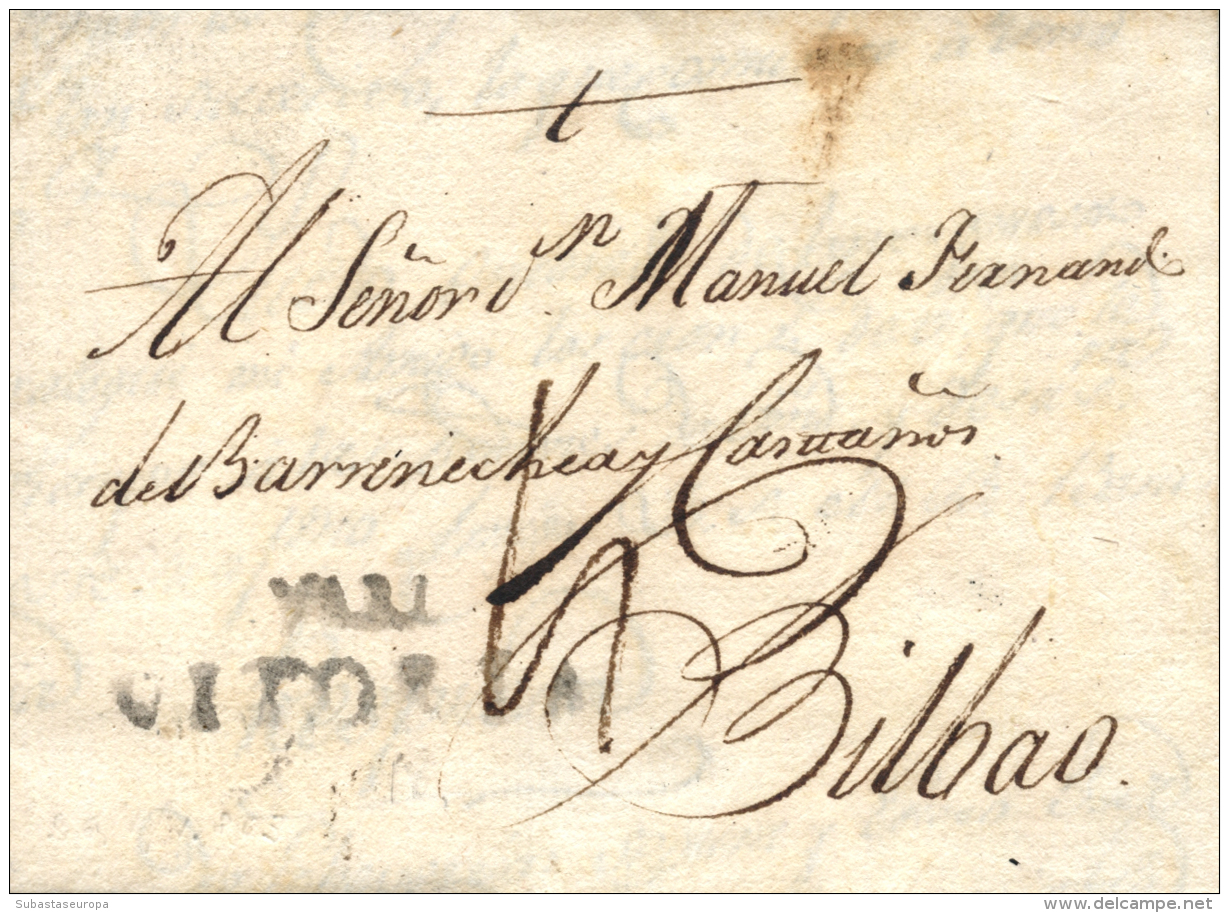 Al Señor dn. Manuel Fernand.
de Barrenechea y
Bilbao.
Subastaseuropa
www.delcampe.net